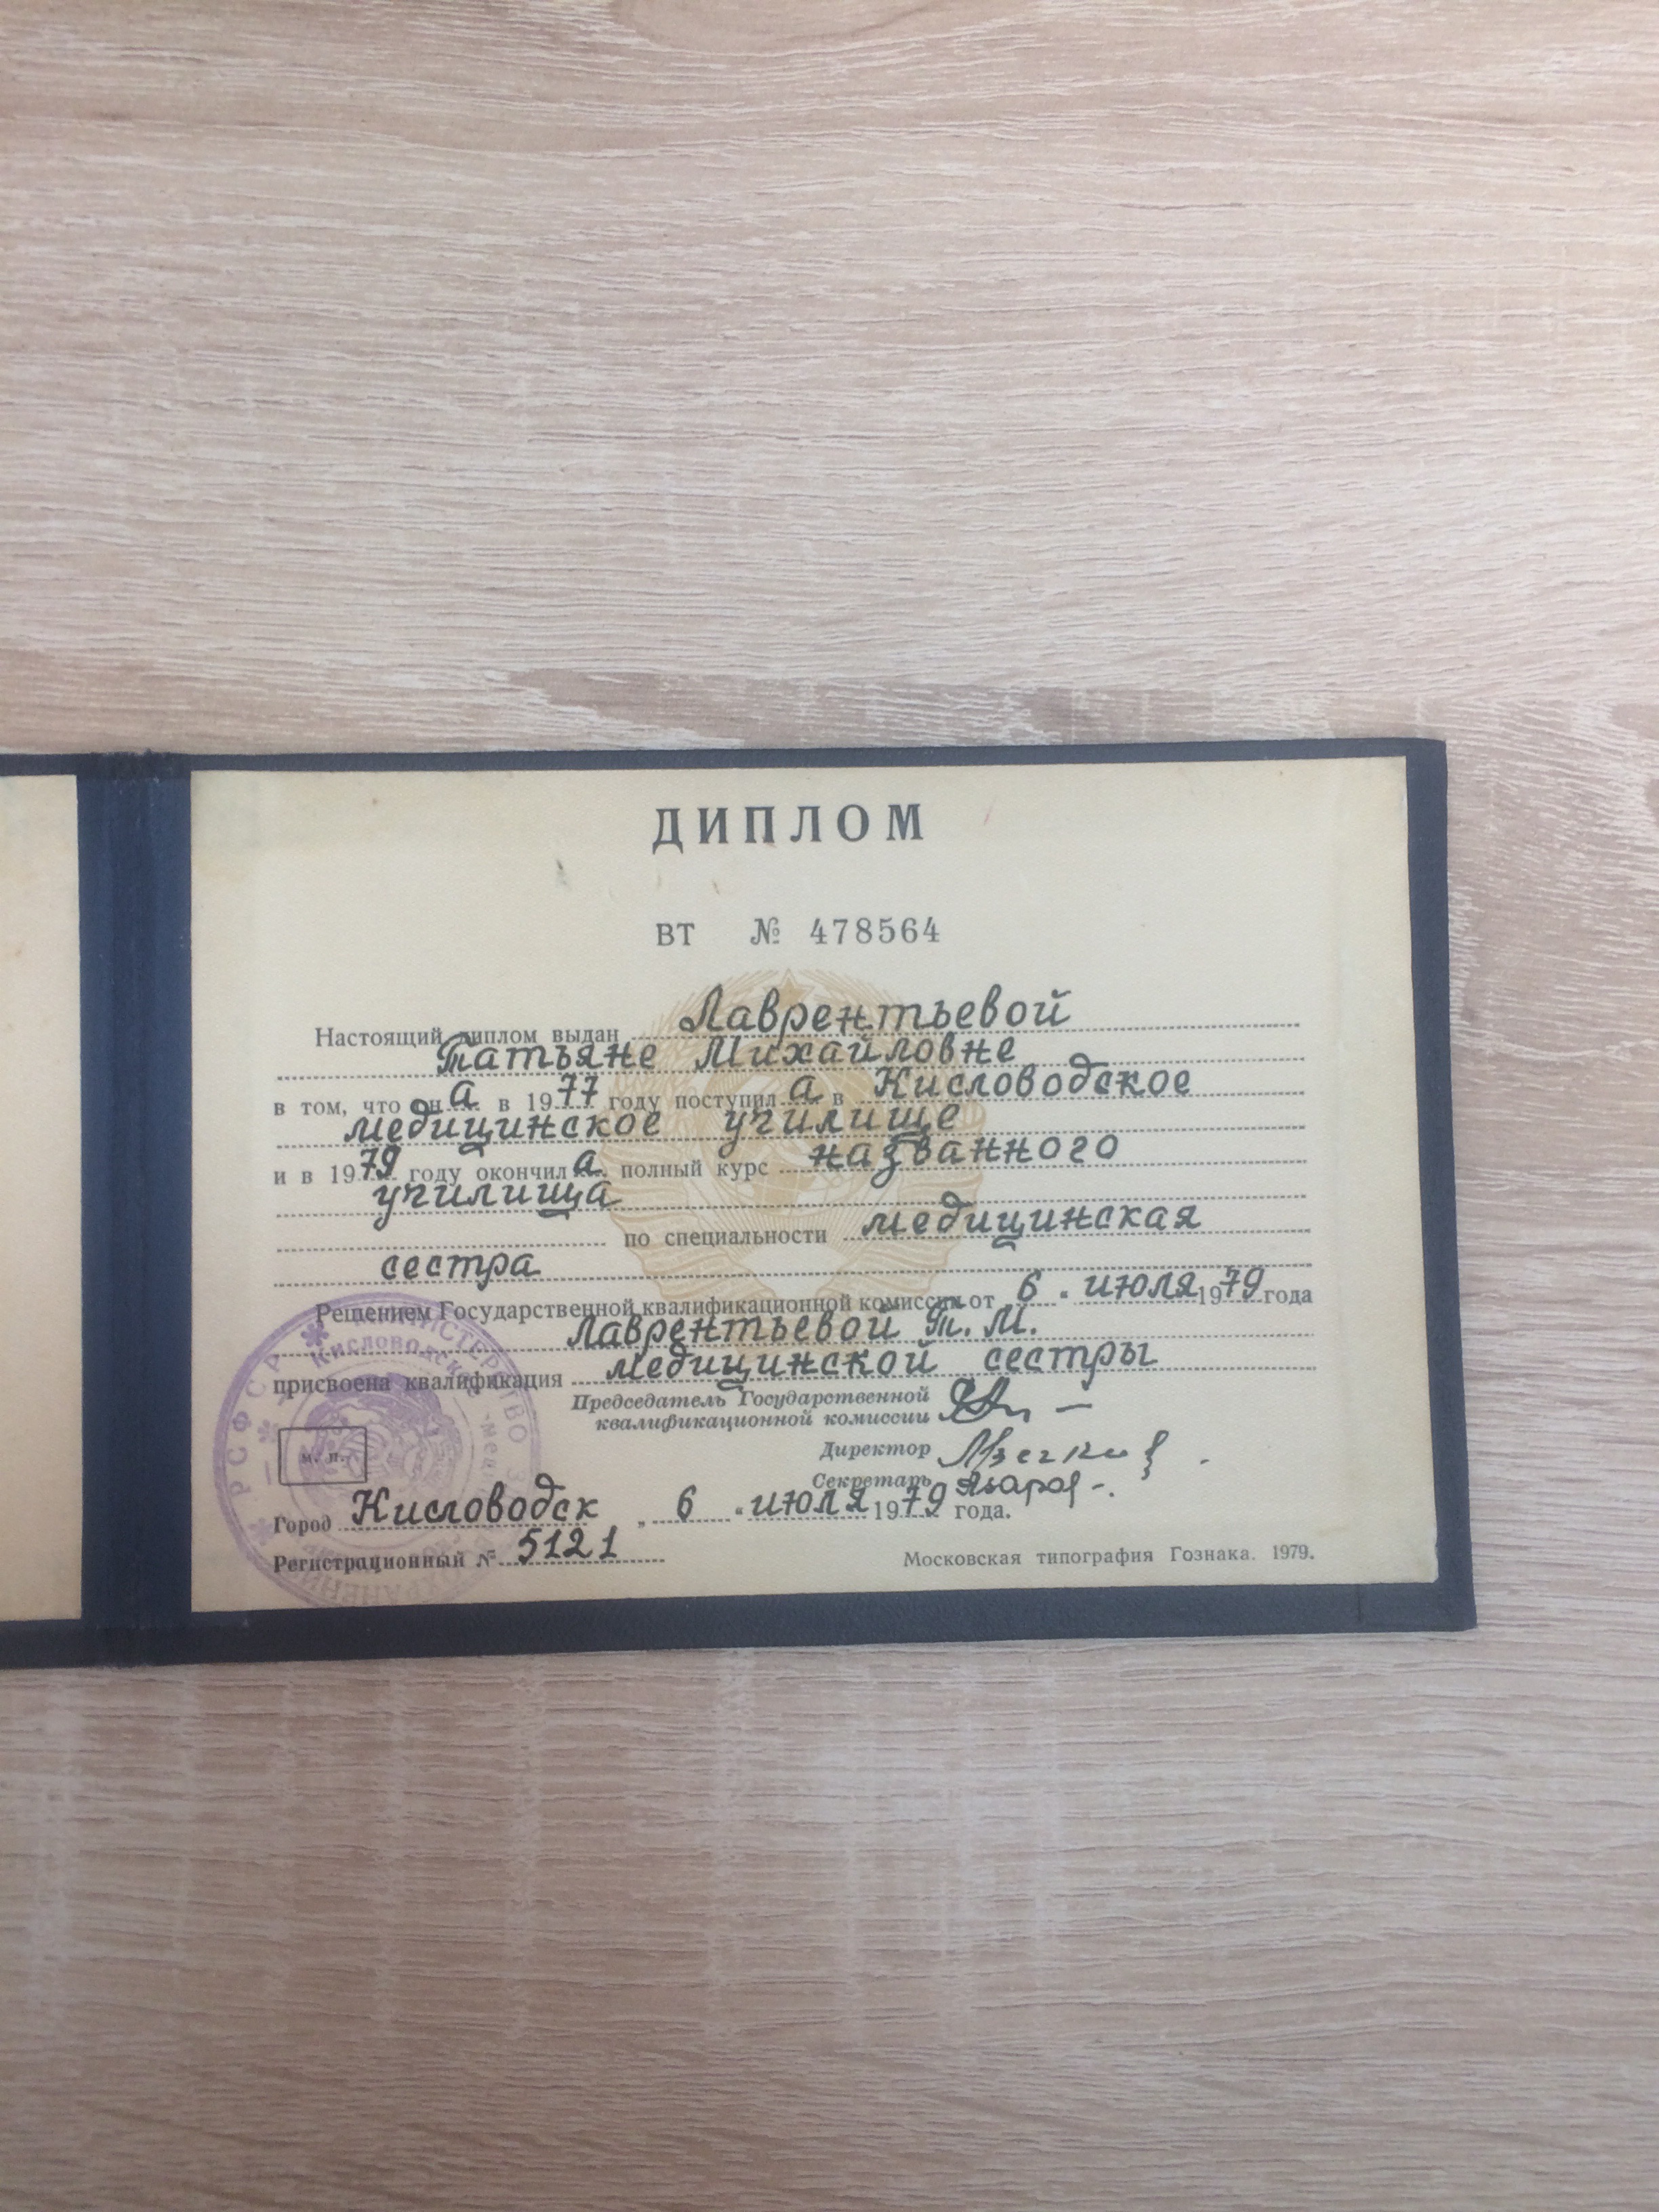 ДИПЛОМ
ВТ № 478564
Настоящий диплом выдан Лаврентьевой
Татьяне Михайловне
в том, что она в 1977 году поступила в Кисловодское
медицинское училище
и в 1979 году окончила полный курс названного
училища
по специальности медицинская
сестра
Решением Государственной квалификационной комиссии от 6 " июля 1979 года
Лаврентьевой Т. М.
присвоена квалификация медицинской сестры
Председатель Государственной
квалификационной комиссии
Директор
Секретарь
м. п.
Город Кисловодск „ 6 " июля 1979 года.
Регистрационный № 5121
Московская типография Гознака. 1979.
РСФСР
МИНИСТЕРСТВО